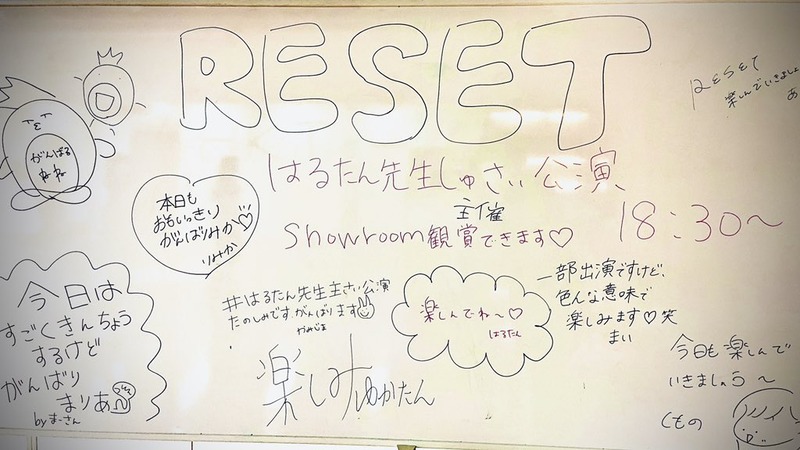 RESET
RESET
楽しんでいきましょ
あ
はるたん先生しゅさい公演
主催
Showroom観賞できます♡
18:30〜
がんばる
ねね
本日も
おもいっきり
がんばりみか♡
りみか
今日は
すごくきんちょう
するけど
がんばり
まりあ
by まーさん
#はるたん先生主さい公演
たのしみです。がんばります
楽しんでね〜♡
はるたん
一部出演ですけど、
色んな意味で
楽しみます♡笑
まい
楽しみ ゆかたん
今日も楽しんで
いきましょう〜
くもの